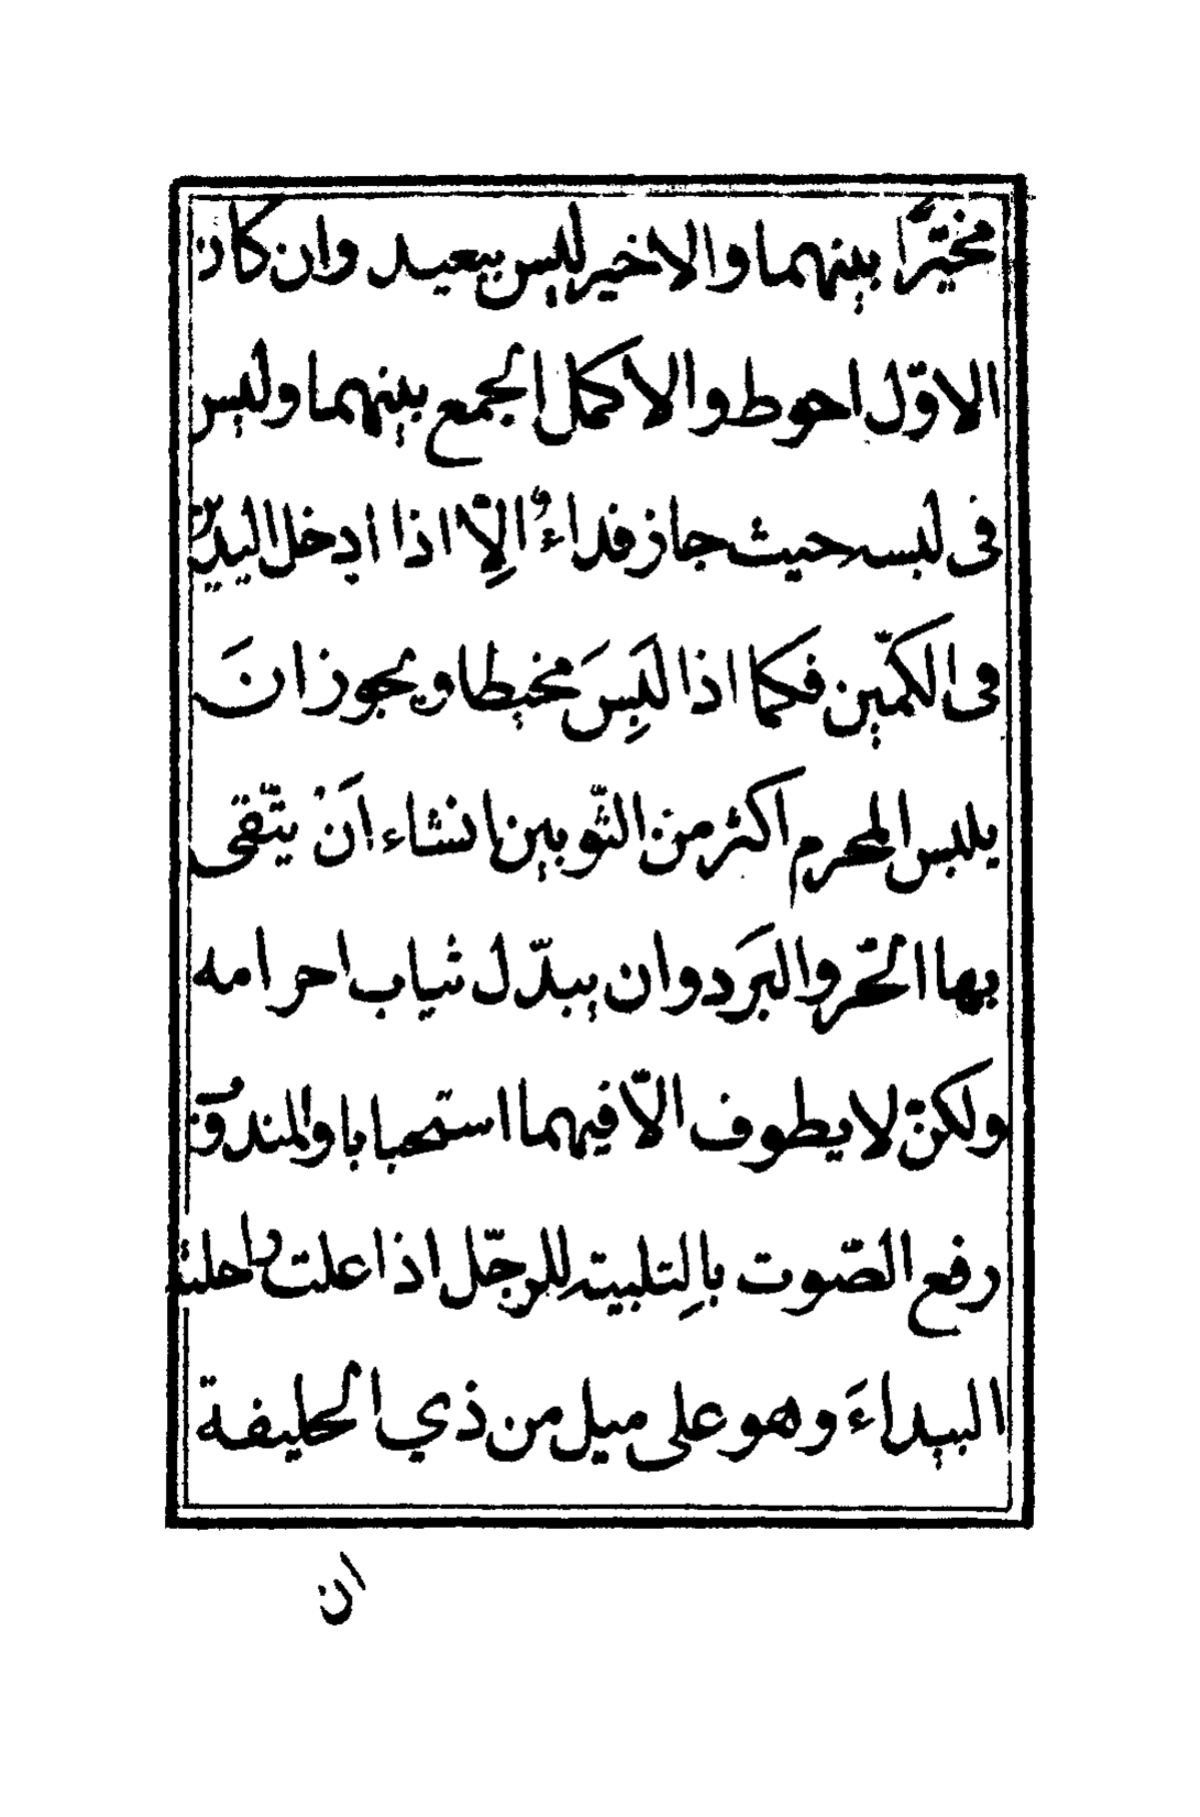 مخيّرًا بينهما والاخير ليس ببعيد وان كان
الاوّل احوط والاكمل الجمع بينهما وليس
فى لبسه حيث جاز فداءٌ الاّ اذا ادخل اليدين
فى الكمّين فكما اذا لَبِسَ مخيطا ويجوز انَ
يلبس المحرم اكثر من الثّوبين انشاء اَنْ يتّقى
بها الحّر والبَرد وان يبدّل ثياب احرامه
ولكنّ لا يطوف الاّ فيهما استحبابا والمندوّ
رفع الصّوت بالِتلبيته للرجّل اذا علت راحلته
البيداءَ وهو على ميل من ذي الحليفة
ان